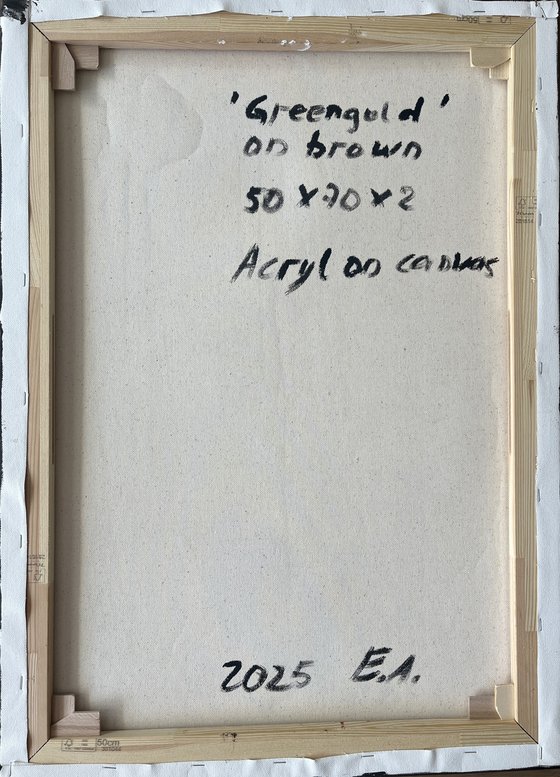 'Greengold'
on brown
50 x 70 x 2
Acryl on canvas
2025 E.A.
50cm